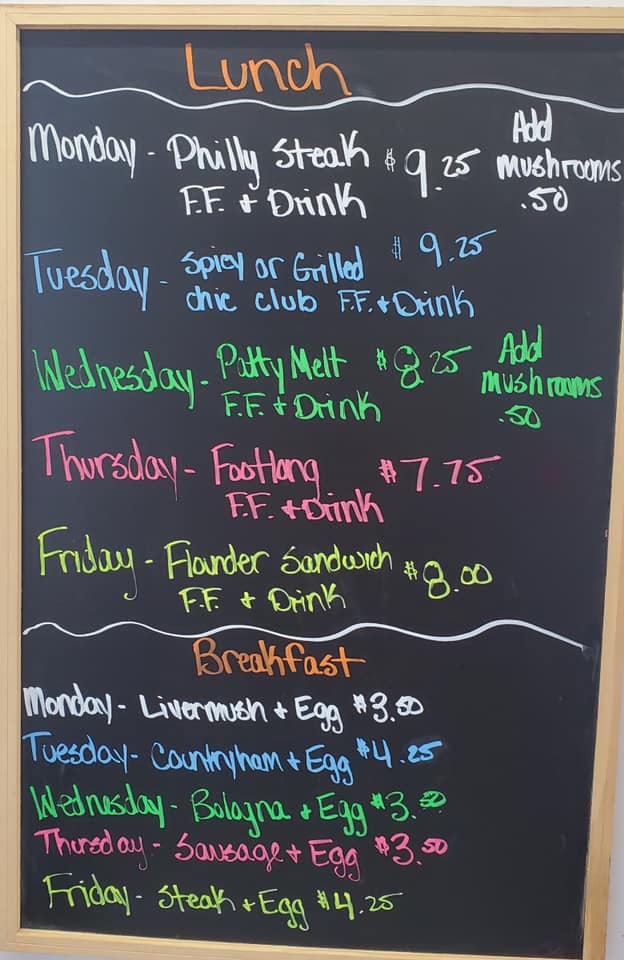 Lunch
Monday - Philly Steak $9.25 Add
F.F. + Drink mushrooms
.50
Tuesday - Spicy or Grilled $9.25
chic club F.F. + Drink
Wednesday - Patty Melt $8.25 Add
F.F. + Drink mushrooms
.50
Thursday - Footlong $7.75
F.F. + Drink
Friday - Flounder Sandwich $8.00
F.F. + Drink
Breakfast
Monday - Livermush + Egg $3.50
Tuesday - Countryham + Egg $4.25
Wednesday - Bologna + Egg $3.50
Thursday - Sausage + Egg $3.50
Friday - Steak + Egg $4.25